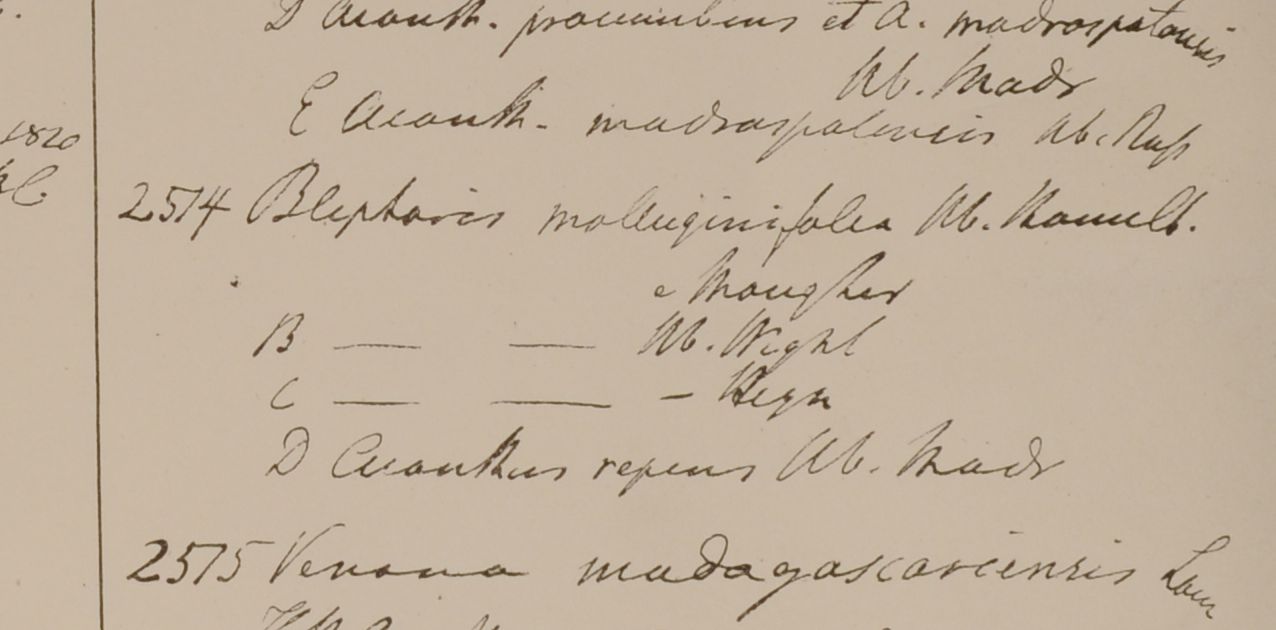 D Acanth. procumbens et A. madraspatensis
Hb. Madr
E Acanth. madraspatensis Hb. Russ
1820
2514 Blepharis molluginifolia Hb. Hamilt.
e Monghir
B — — Hb. Wight
C — — — Heyn
D Acanthus repens Hb. Madr
2515 Verona madagascariensis Lam